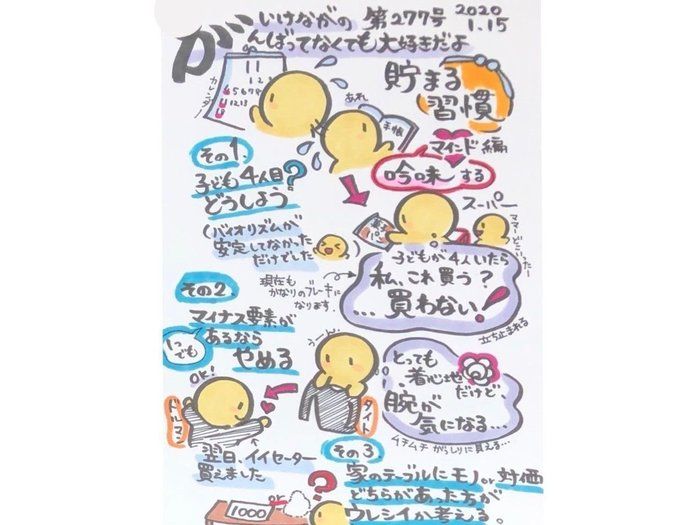 いけながの 第277号 2020 1.15
がんばってなくても大好きだよ
カレンダー
11
1.2
5678
12.13
あれ
手帳
貯まる
習慣
マインド編
吟味する
その1.
子ども4人目?
どうしよう
(バイオリズムが
安定してなかった
だけでした)
スーパー
ママーどこいったー
子どもが4人いたら
私、これ買う?
…買わない!
立ち止まれる
現在も
かなりのブレーキに
なります。
その2.
マイナス要素が
1つでも
あるなら
やめる
OK!
うーん…
とっても
着心地
だけど、
腕が
気になる…
ムチムチ がっしりに見える…
ドルマン
タイト
翌日、イイセーター
買えました
その3
家のテーブルにモノor対価
どちらがあった方が
ウレシイか考える。
1000
?